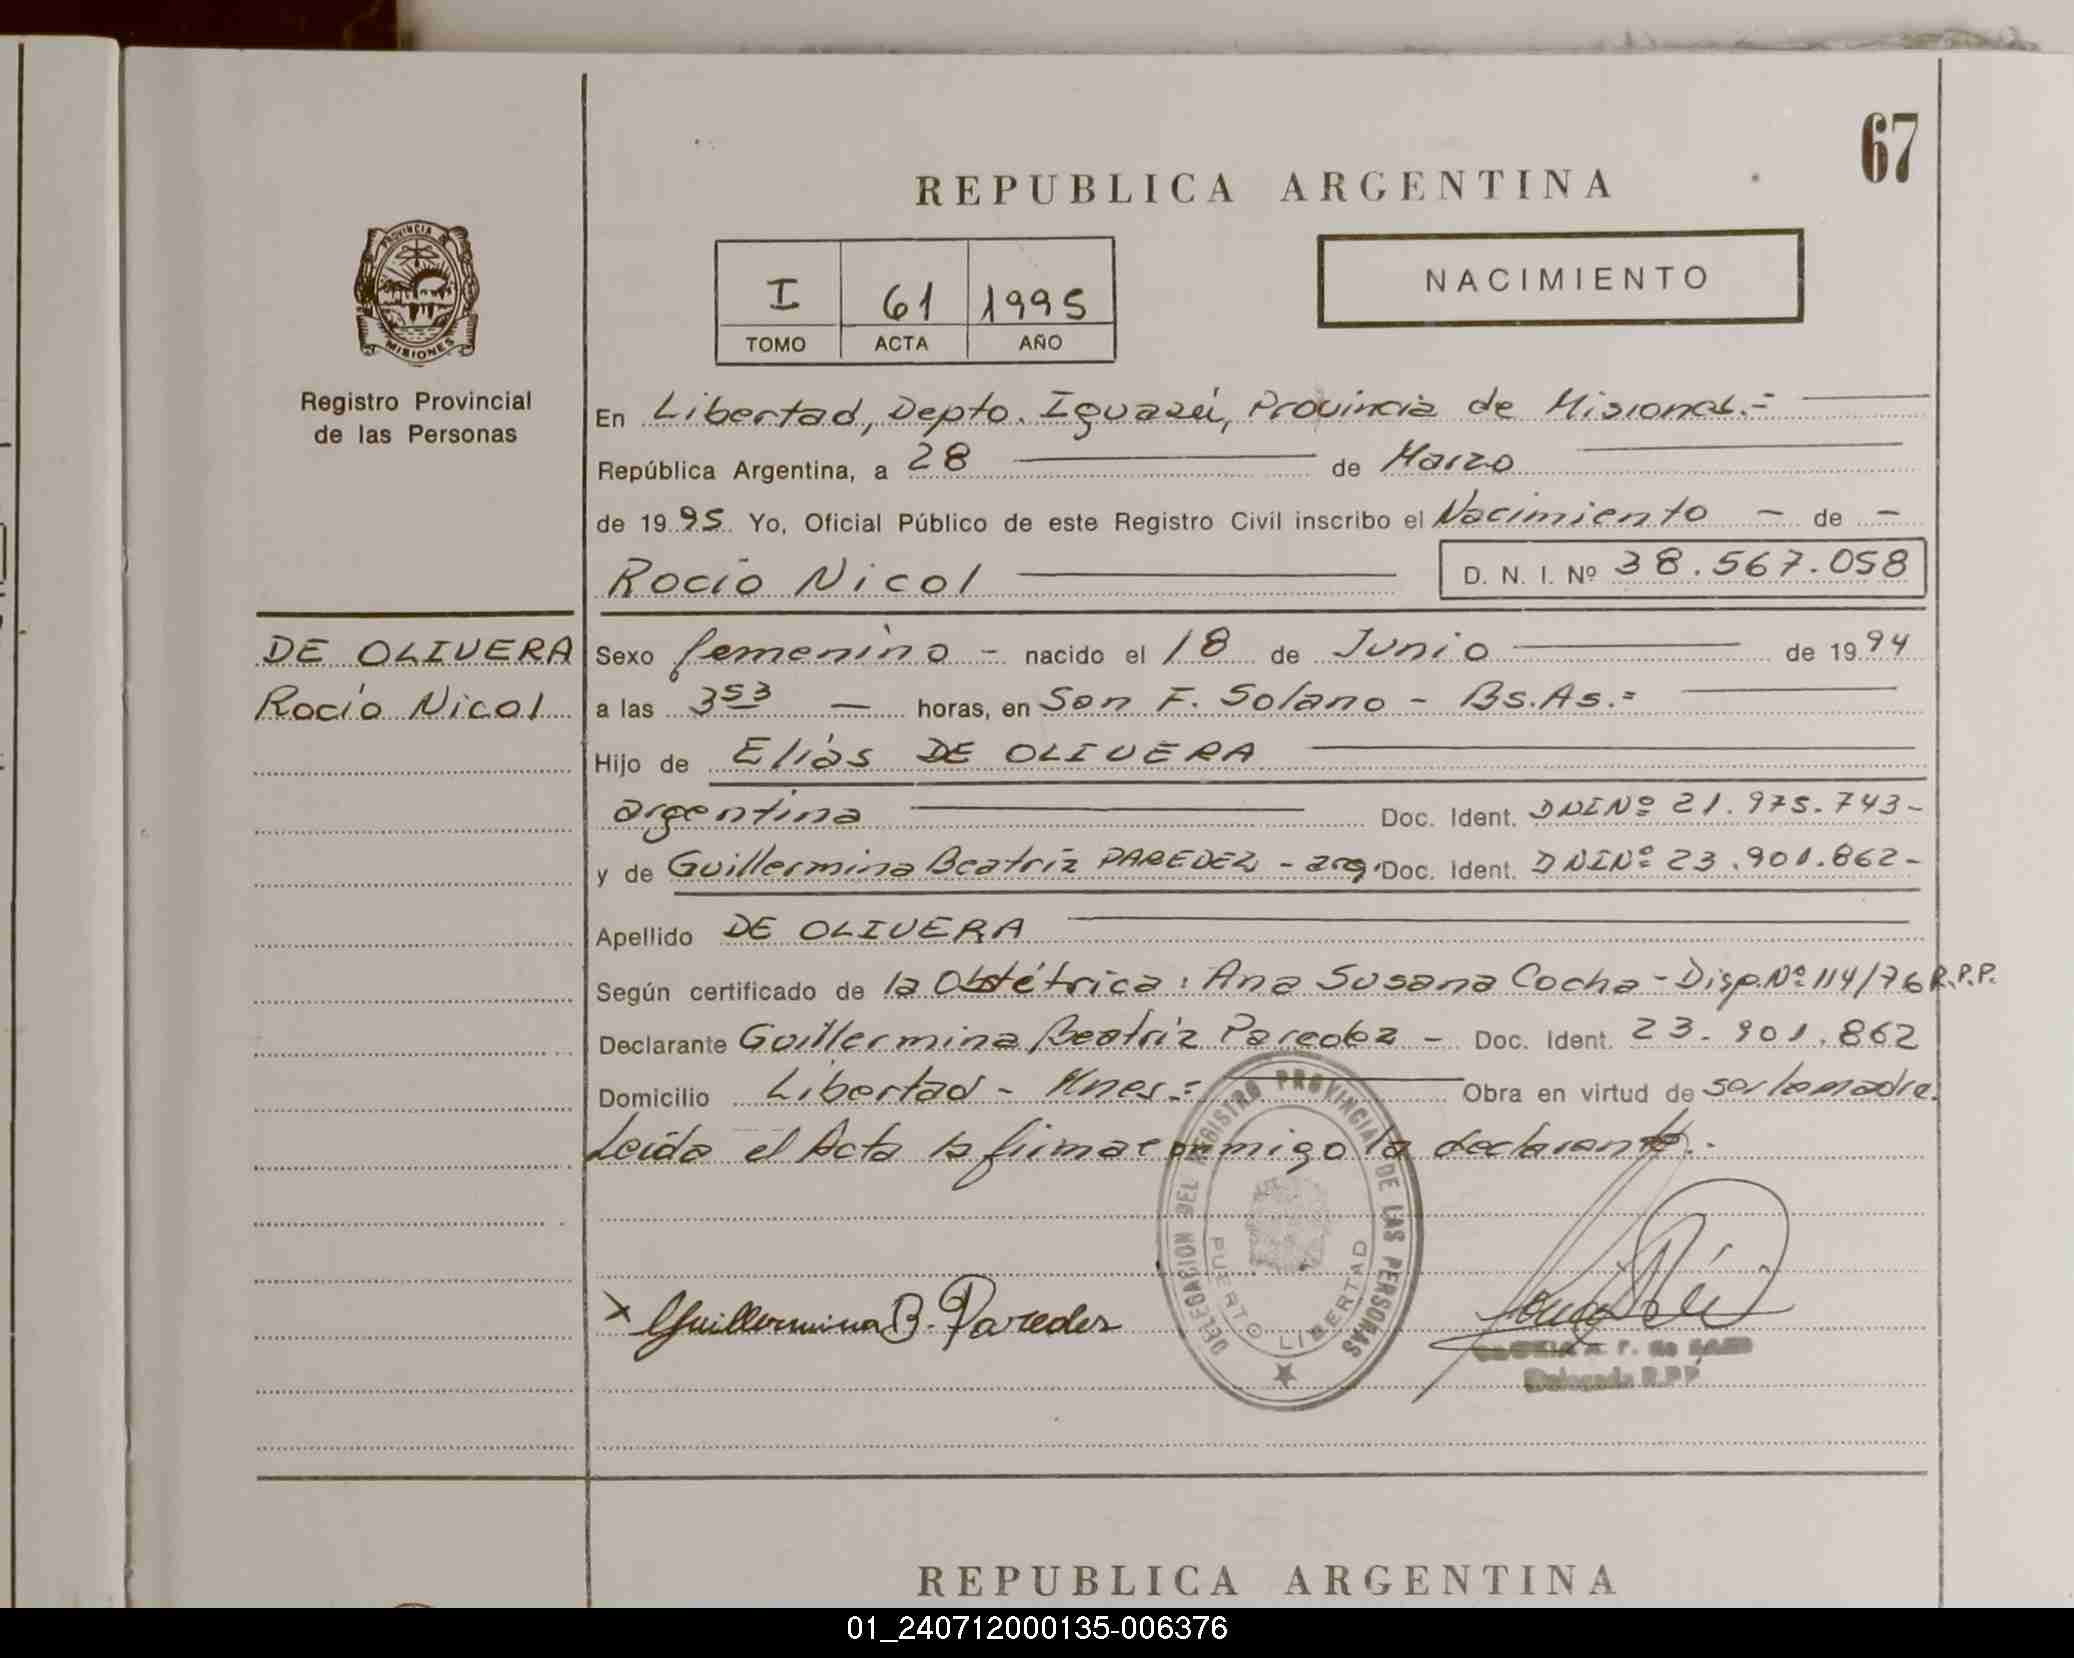 67
REPUBLICA ARGENTINA
PROVINCIA DE
MISIONES
Registro Provincial
de las Personas
I 61 1995
TOMO ACTA AÑO
NACIMIENTO
En Libertad, Depto. Iguazú, Provincia de Misiones.=
República Argentina, a 28 de Marzo
de 1995 Yo, Oficial Público de este Registro Civil inscribo el Nacimiento - de -
Rocío Nicol D. N. I. Nº 38.567.058
DE OLIVERA
Rocío Nicol
Sexo femenino - nacido el 18 de Junio de 1994
a las 3 53 — horas, en San F. Solano - Bs.As.=
Hijo de Elías DE OLIVERA
argentina Doc. Ident. DNINº 21.975.743-
y de Guillermina Beatríz PAREDEZ - arg. Doc. Ident. DNINº 23.901.862-
Apellido DE OLIVERA
Según certificado de la Obstétrica: Ana Susana Cocha - Disp.Nº 114/76 R.P.P.
Declarante Guillermina Beatríz Paredez - Doc. Ident. 23.901.862
Domicilio Libertad - Mnes.= Obra en virtud de ser la madre.
Leída el Acta la firma conmigo la declarante.-
DELEGACION DEL REGISTRO PROVINCIAL DE LAS PERSONAS
PUERTO LIBERTAD
x Guillermina B. Paredes
Delegada R.P.P.
REPUBLICA ARGENTINA
01_240712000135-006376